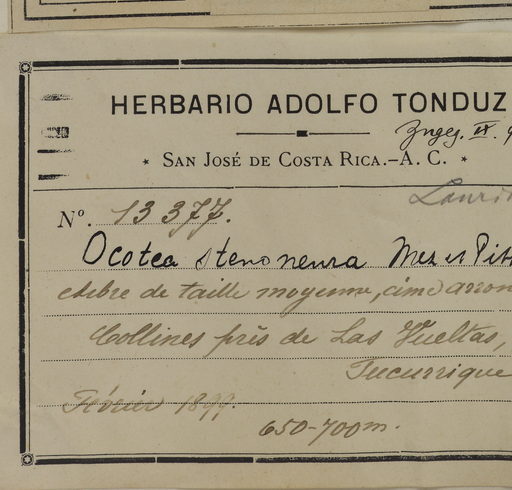 HERBARIO ADOLFO TONDUZ
SAN JOSÉ DE COSTA RICA.-A. C.
Nº. 13377.
Ocotea stenoneura Mez et Pitt
Arbre de taille moyenne, cime arron
Collines près de Las Vueltas,
Tucurrique
Février 1899.
650-700m.